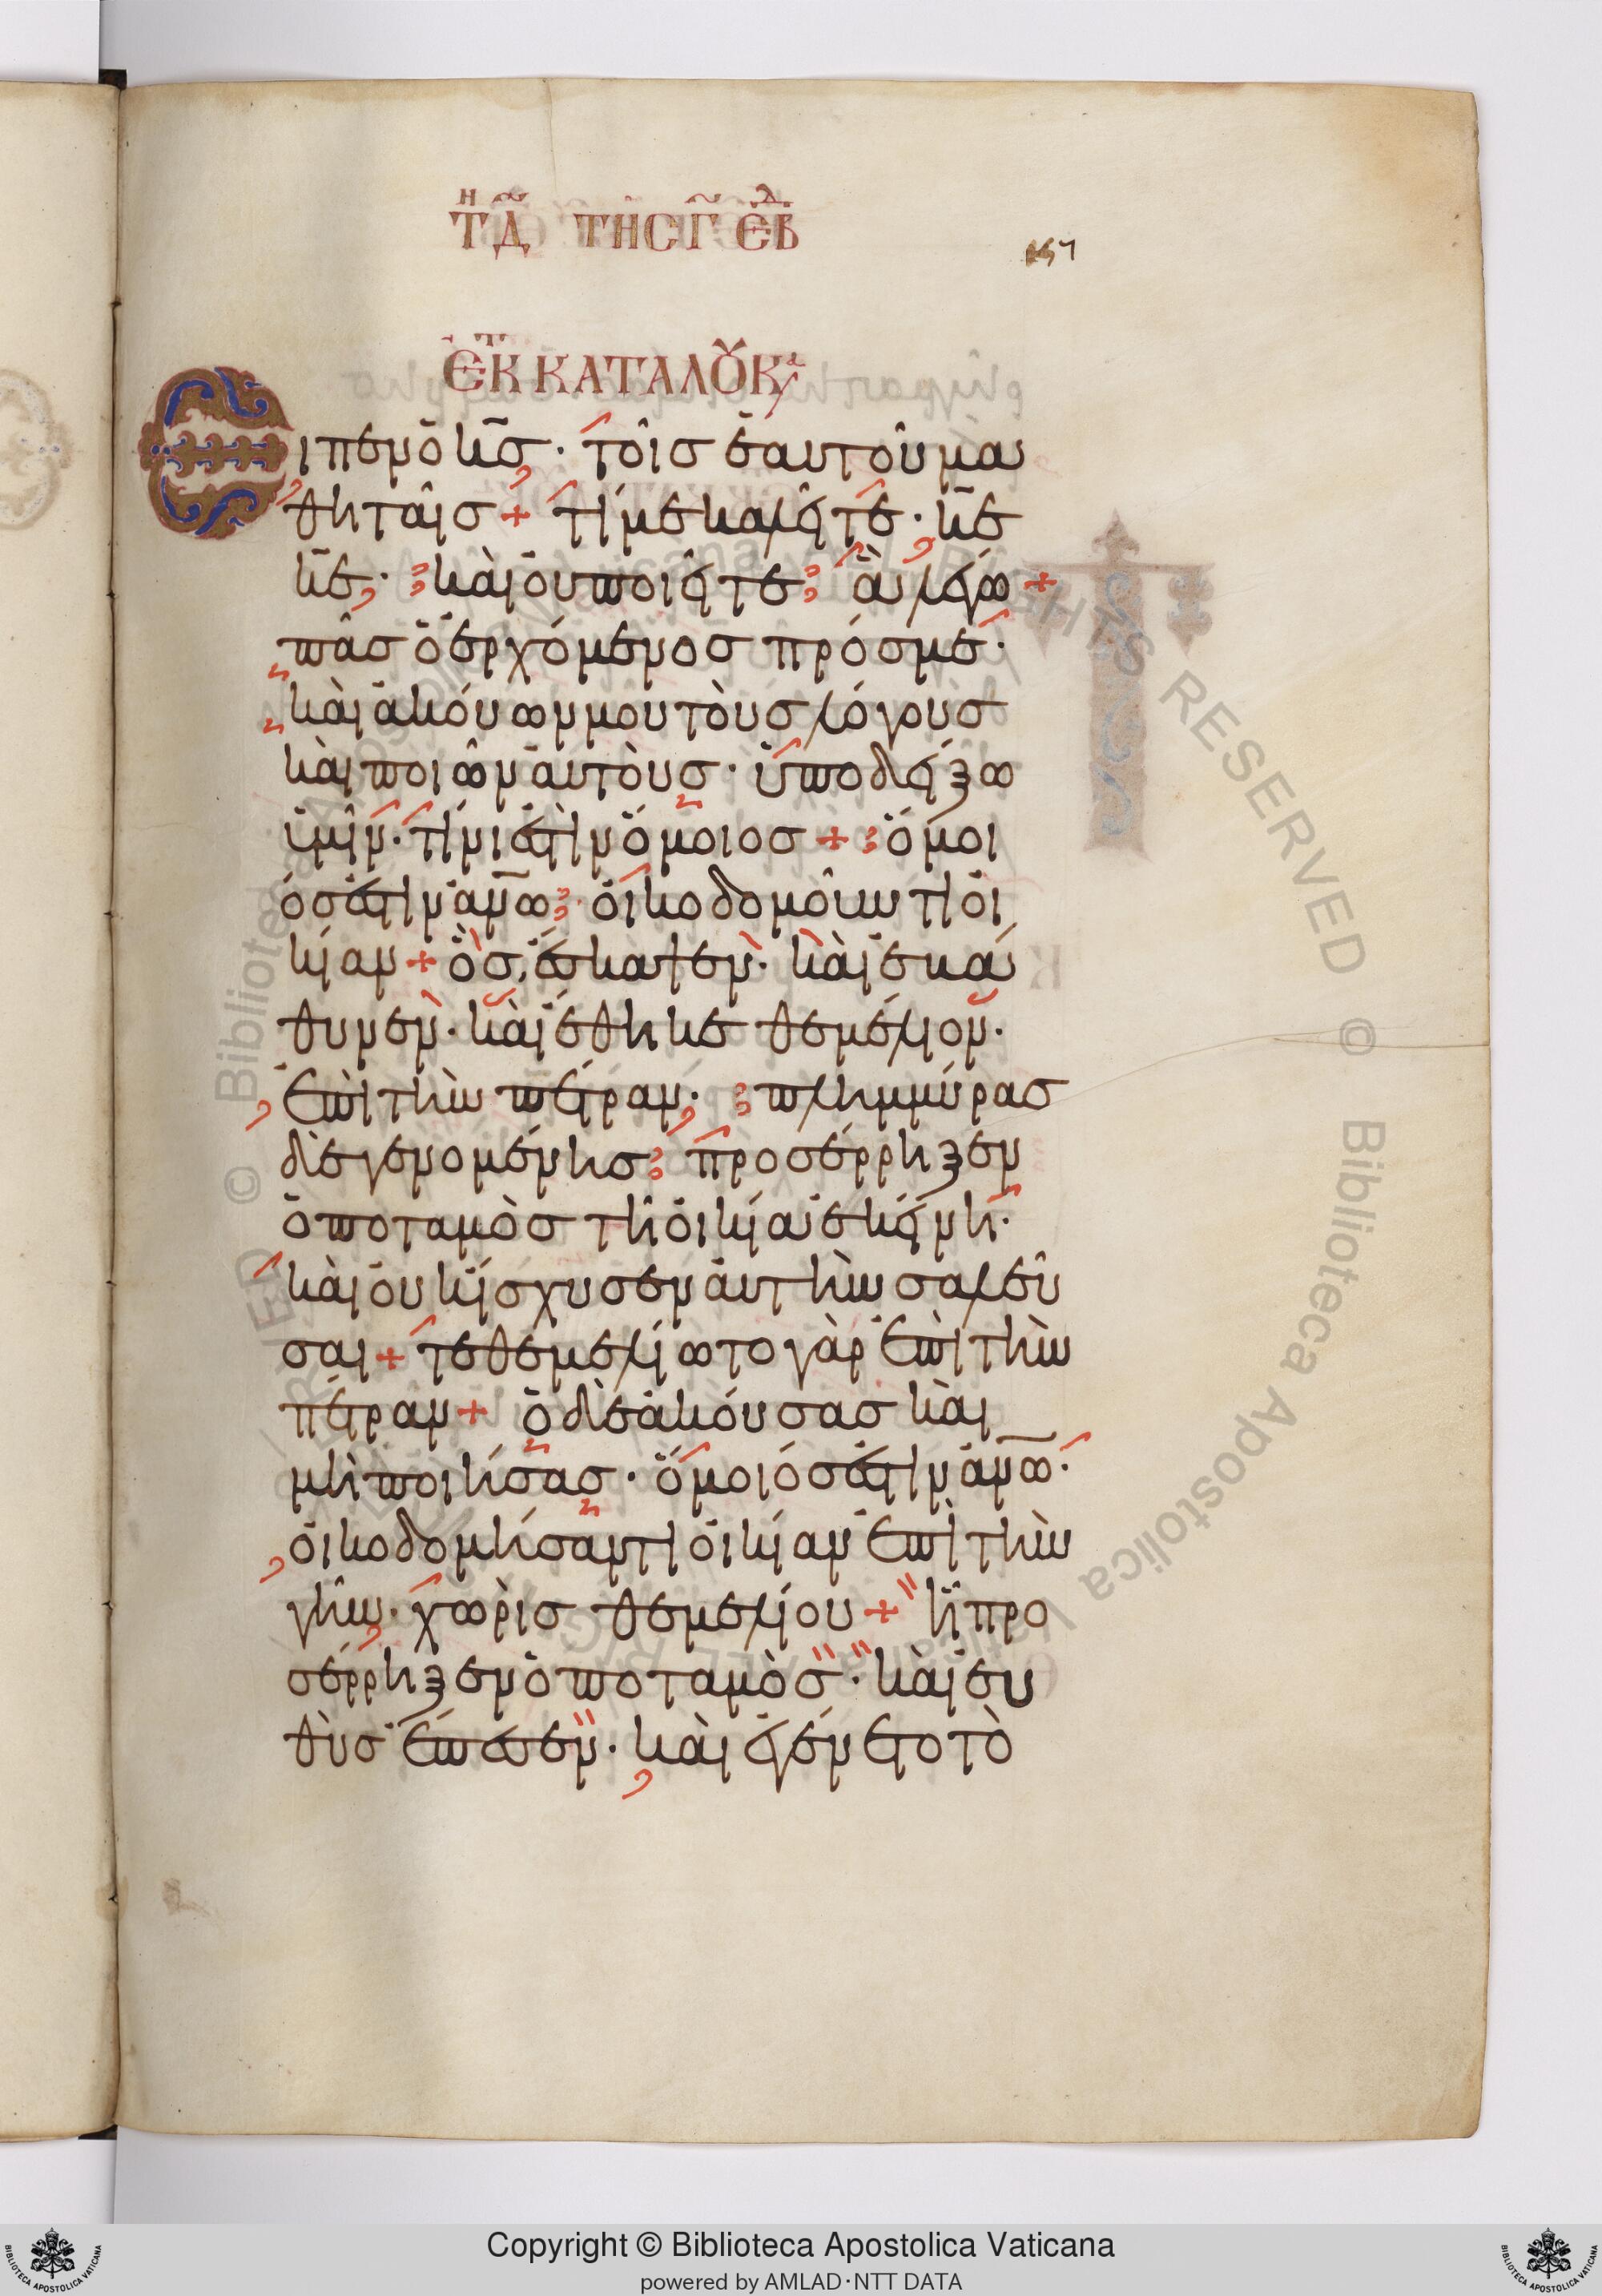 Τῌ Δ̅ ΤΗΣ Γ̅ ΕΒΔ
157
ΕΚ Τ ΚΑΤΑ ΛΟΥΚΑ
Εἶπεν ὁ κ̅σ̅· τοῖσ ἑαυτοῦ μα
θηταῖσ + τί με καλεῖτε· κ̅ε̅
κ̅ε̅· καὶ οὐ ποιεῖτε ἃ λέγω +
πᾶσ ὁ ἐρχόμενοσ πρόσ με·
καὶ ἀκούων μου τοὺσ λόγουσ
καὶ ποιῶν αὐτοὺσ· ὑποδείξω
ὑμῖν· τίνι ἐστὶν ὅμοιοσ + ὅμοι
όσ ἐστιν ἀν̅ω̅· οἰκοδομοῦντι οἰ
κίαν + ὃσ ἔσκαψεν· καὶ ἐβά
θυνεν· καὶ ἔθηκε θεμέλιον·
ἐπὶ τὴν πέτραν· πλημμύρασ
δὲ γενομένησ προσέρρηξεν
ὁ ποταμὸσ τῆ οἰκία ἐκείνη·
καὶ οὐκ ἴσχυσεν αὐτὴν σαλεῦ
σαι + τεθεμελίωτο γὰρ ἐπὶ τὴν
πέτραν + ὁ δὲ ἀκούσασ καὶ
μὴ ποιήσασ· ὅμοιόσ ἐστιν ἀν̅ω̅·
οἰκοδομήσαντι οἰκίαν ἐπὶ τὴν
γῆν· χωρὶσ θεμελίου + ἧ προ
σέρρηξεν ὁ ποταμὸσ· καὶ εὐ
θὺσ ἔπεσεν· καὶ ἐγένετο τὸ
© Biblioteca Apostolica Vaticana ALL RIGHTS RESERVED © Biblioteca Apostolica Vaticana ALL RIGHTS RESERVED
Copyright © Biblioteca Apostolica Vaticana
powered by AMLAD·NTT DATA
BIBLIOTECA APOSTOLICA VATICANA
BIBLIOTECA APOSTOLICA VATICANA